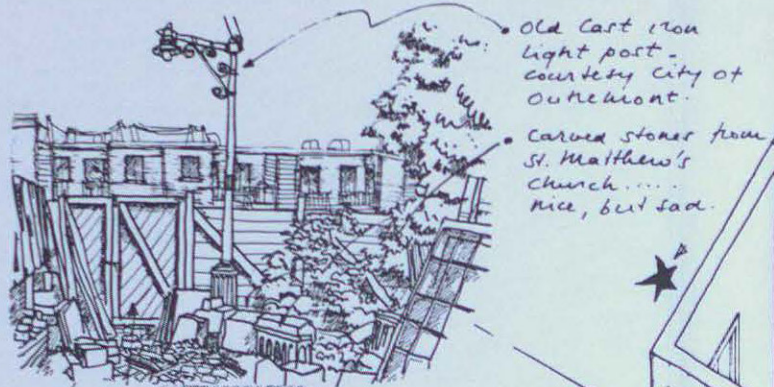 • Old Cast iron
light post.
courtesy City of
Outremont.
• Carved stones from
St. Matthew's
church.....
nice, but sad.